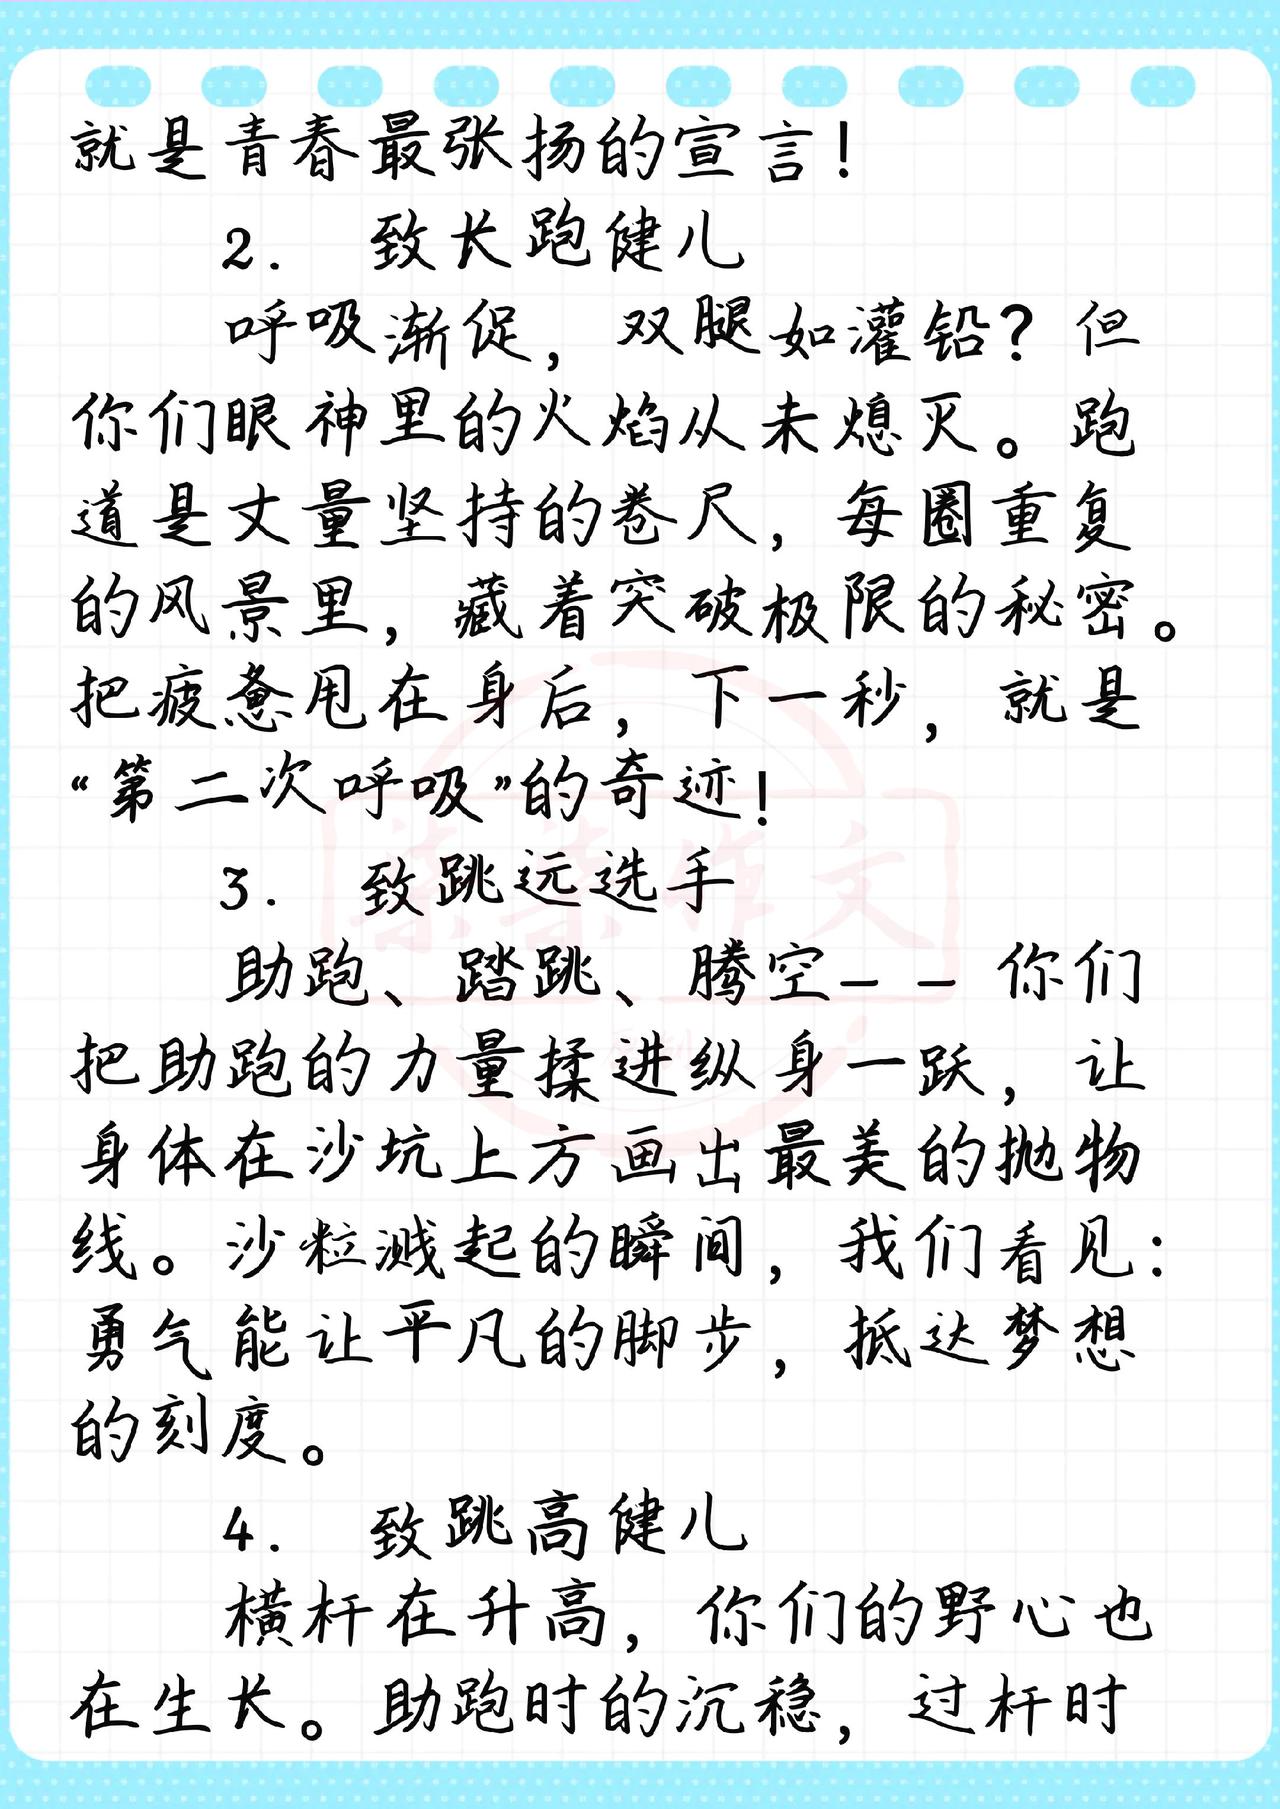 就是青春最张扬的宣言！
2. 致长跑健儿
呼吸渐促，双腿如灌铅？但
你们眼神里的火焰从未熄灭。跑
道是丈量坚持的卷尺，每圈重复
的风景里，藏着突破极限的秘密。
把疲惫甩在身后，下一秒，就是
“第二次呼吸”的奇迹！
3. 致跳远选手
助跑、踏跳、腾空——你们
把助跑的力量揉进纵身一跃，让
身体在沙坑上方画出最美的抛物
线。沙粒溅起的瞬间，我们看见：
勇气能让平凡的脚步，抵达梦想
的刻度。
4. 致跳高健儿
横杆在升高，你们的野心也
在生长。助跑时的沉稳，过杆时
柒柒作文